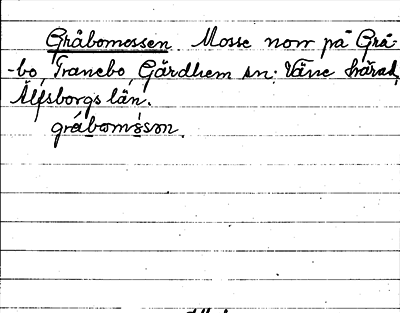 Gråbomossen. Mosse norr på Grå
-bo, Tranebo, Gärdhem sn. Väne härad,
Älfsborgs län.
gråbomåsən.